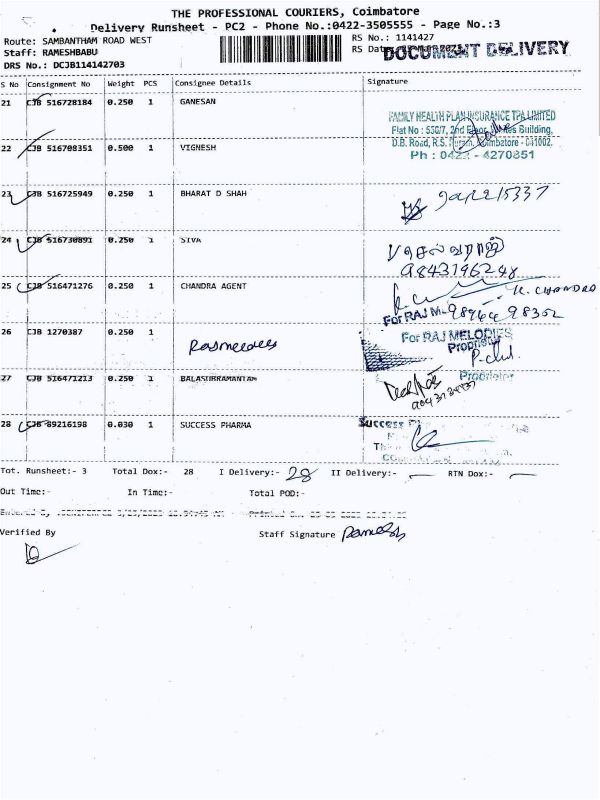 THE PROFESSIONAL COURIERS, Coimbatore
Delivery Runsheet - PC2 - Phone No.:0422-3505555 - Page No.:3
Route: SAMBANTHAM ROAD WEST
RS No.: 1141427
Staff: RAMESHBABU
RS Date
DOCUMENT DELIVERY
DRS No.: DCJB114142703
S No Consignment No Weight PCS Consignee Details Signature
21 CJB 516728184 0.250 1 GANESAN
FAMILY HEALTH PLAN INSURANCE TPA LIMITED
Flat No : 530/7, 2nd Floor, Building,
D.B. Road, R.S. Puram, Coimbatore - 641002.
Ph : 0422 - 4270851
22 CJB 516708351 0.500 1 VIGNESH
23 CJB 516725949 0.250 1 BHARAT D SHAH
24 CJB 516730891 0.250 1 SIVA
செல்வராஜ்
9843196248
25 CJB 516471276 0.250 1 CHANDRA AGENT
K. CHANDRA
For RAJ M
26 CJB 1270387 0.250 1
For RAJ MELODIES
Proprietor
27 CJB 516471213 0.250 1 BALASUBRAMANIAM
Proprietor
28 CJB 89216198 0.030 1 SUCCESS PHARMA
Success
Tot. Runsheet:- 3 Total Dox:- 28 I Delivery:- 28 II Delivery:- — RTN Dox:- —
Out Time:- In Time:- Total POD:-
Verified By
Staff Signature Ramesh